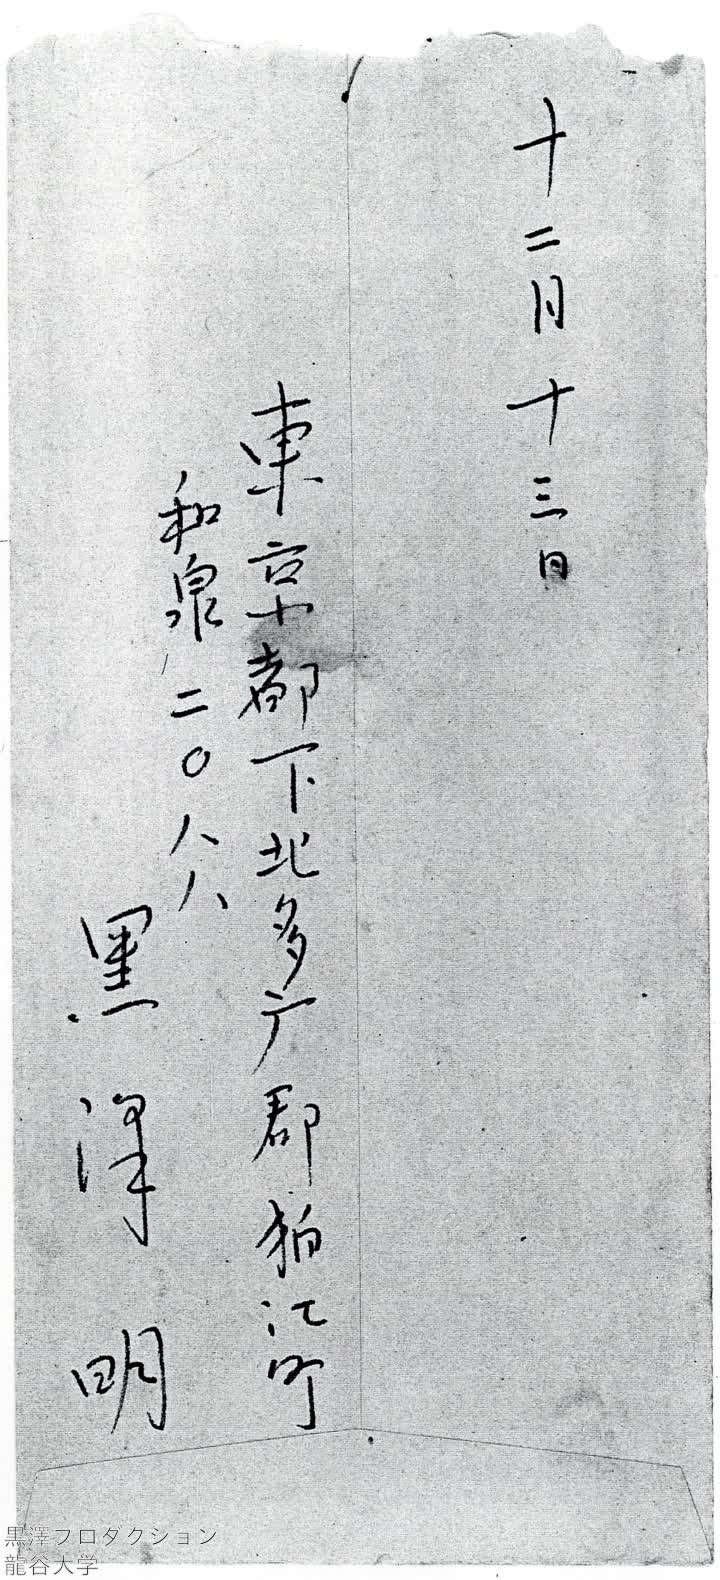 十二月十三日
東京都下北多广郡狛江町
和泉二〇八八
黒澤明
黒澤プロダクション
龍谷大学